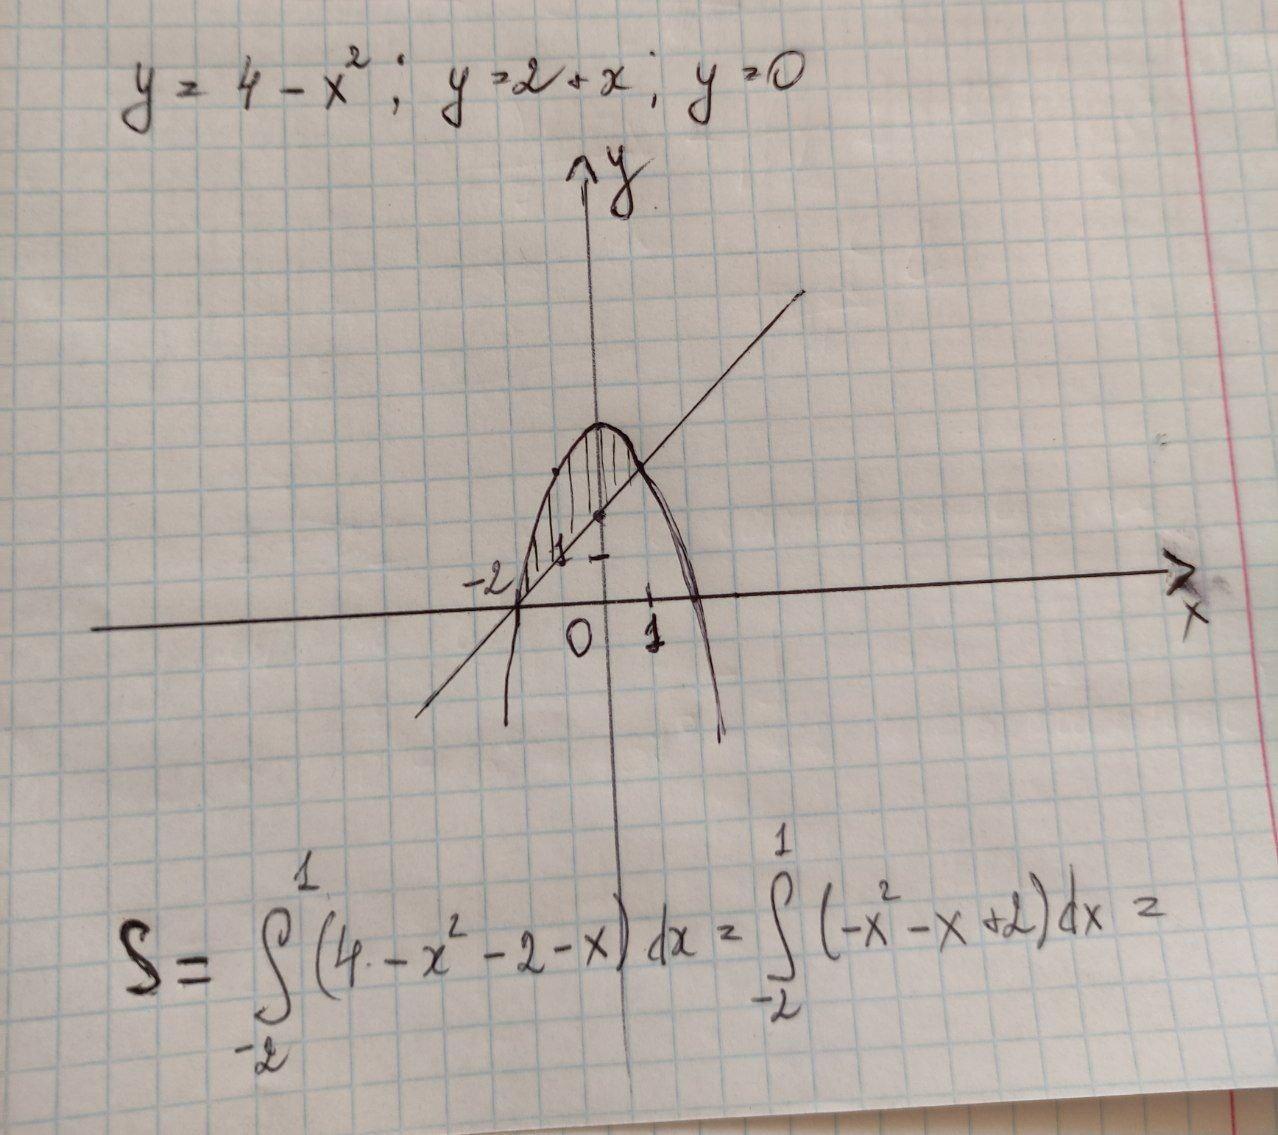 y = 4 - x²; y = 2 + x; y = 0
y
1
-2
0 1
x
S = ∫₋₂¹ (4 - x² - 2 - x) dx = ∫₋₂¹ (-x² - x + 2) dx =